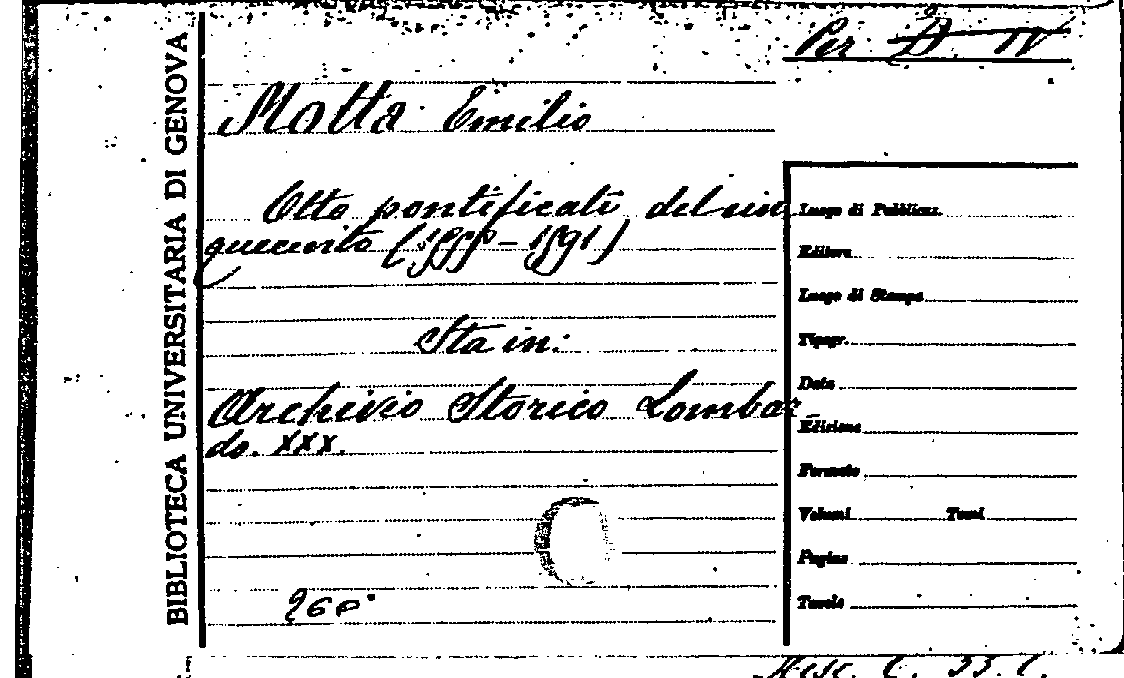 Per
BIBLIOTECA UNIVERSITARIA DI GENOVA
Motta Emilio
Otto pontificati del cin
quecento (1555-1591)
Sta in:
Archivio Storico Lombar-
do. XXX.
Luogo di Pubblicaz.
Editore
Luogo di Stampa
Tipogr.
Data
Edizione
Formato
Volumi Tomi
Pagine
Tavole